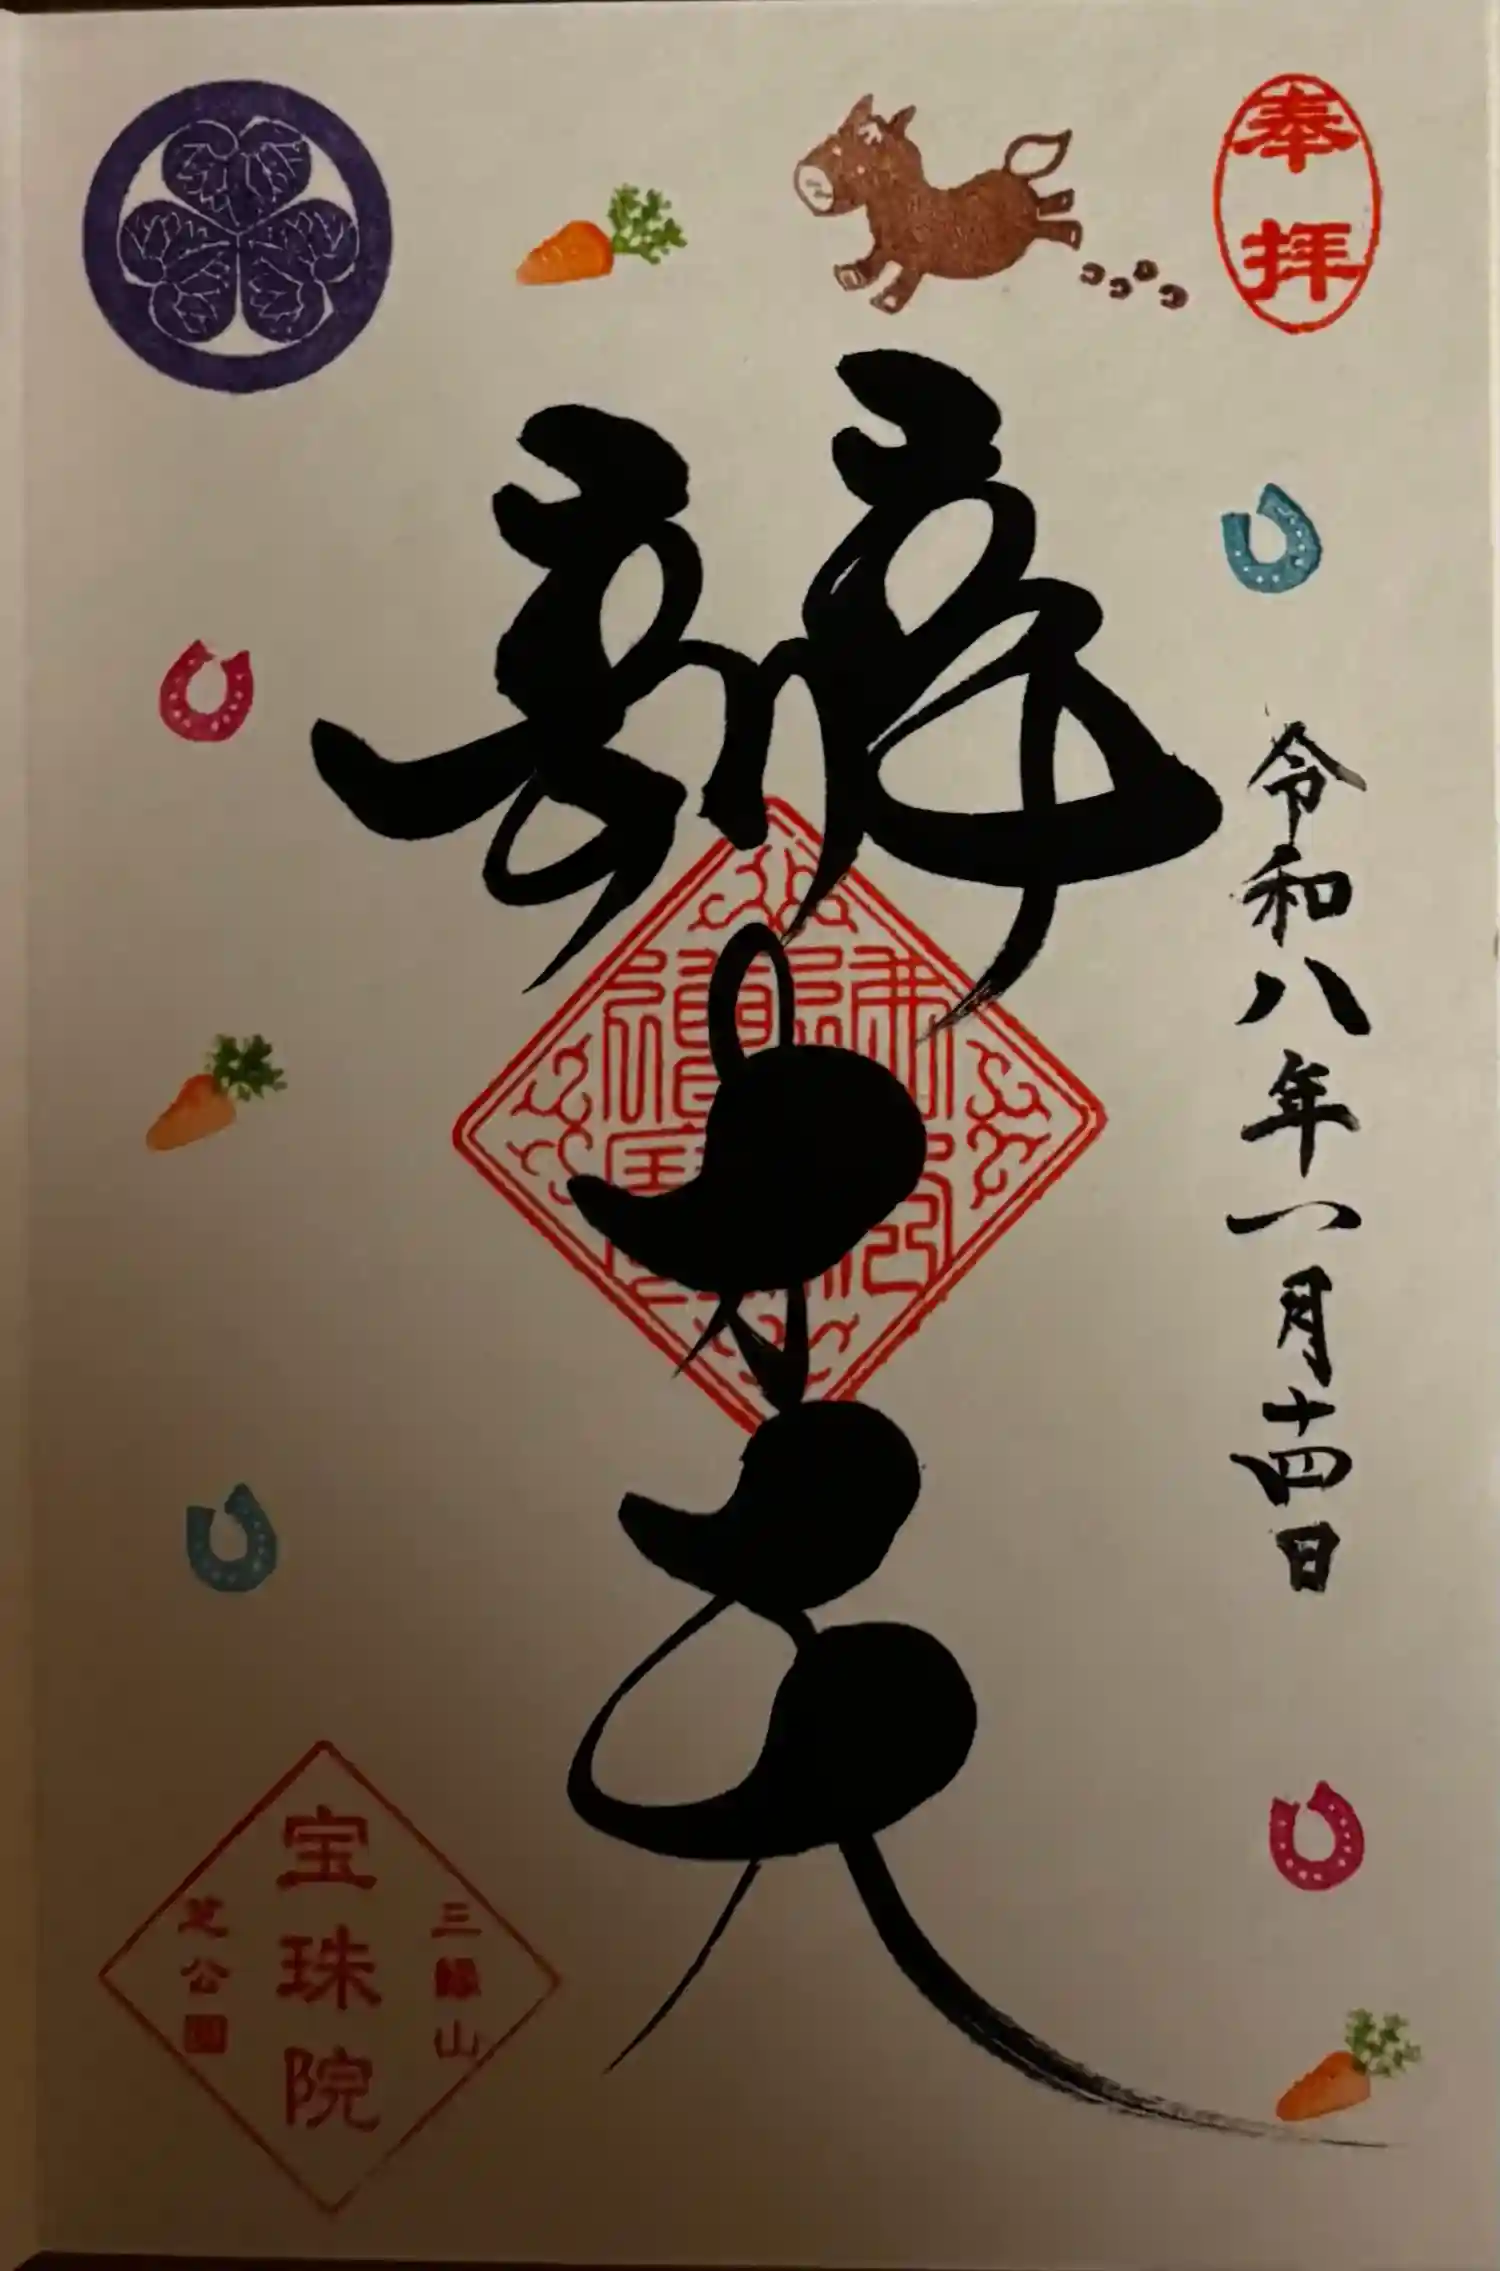 奉拝
令和八年一月十四日
辨才天
三縁山
宝珠院
芝公園